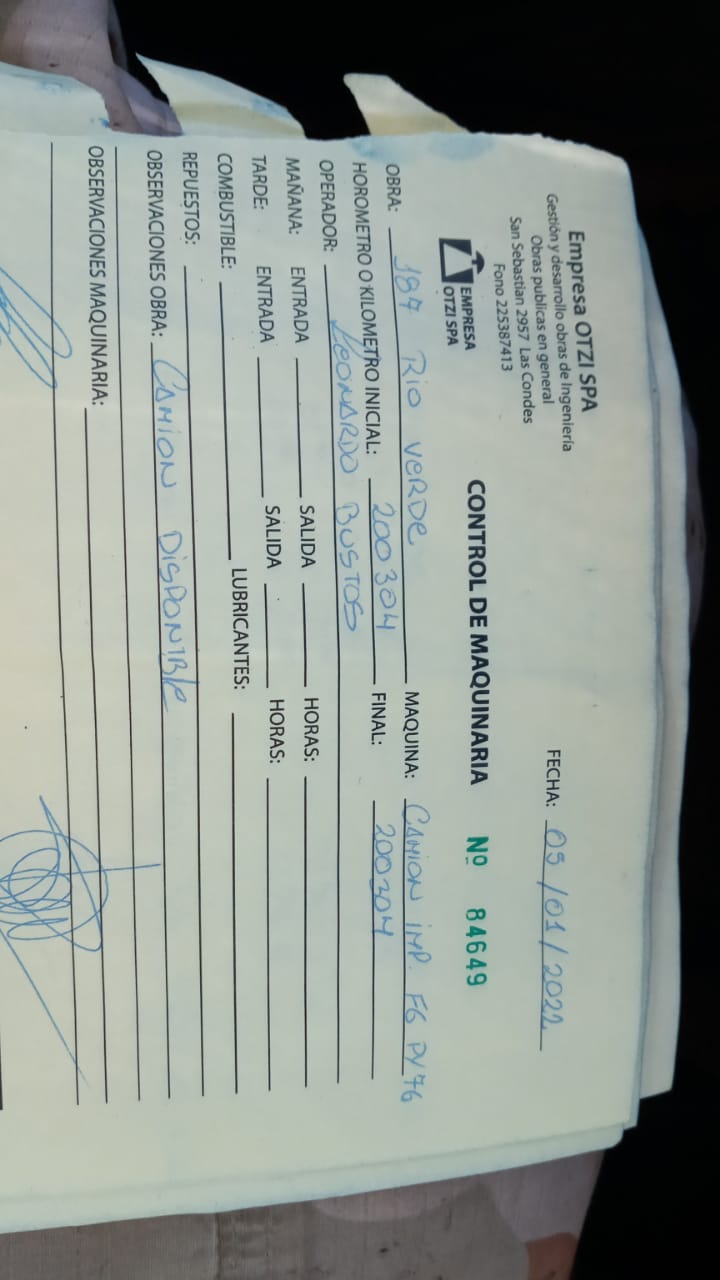 Empresa OTZI SPA
Gestión y desarrollo obras de Ingeniería
Obras publicas en general
San Sebastian 2957 Las Condes
Fono 225387413
FECHA: 05/01/2022
EMPRESA
OTZI SPA
CONTROL DE MAQUINARIA Nº 84649
OBRA: 187 Rio Verde MAQUINA: CAMION IMP. FG PY 76
HOROMETRO O KILOMETRO INICIAL: 200304 FINAL: 200304
OPERADOR: LEONARDO BUSTOS
MAÑANA: ENTRADA SALIDA HORAS:
TARDE: ENTRADA SALIDA HORAS:
COMBUSTIBLE: LUBRICANTES:
REPUESTOS:
OBSERVACIONES OBRA: CAMION DISPONIBLE
OBSERVACIONES MAQUINARIA: